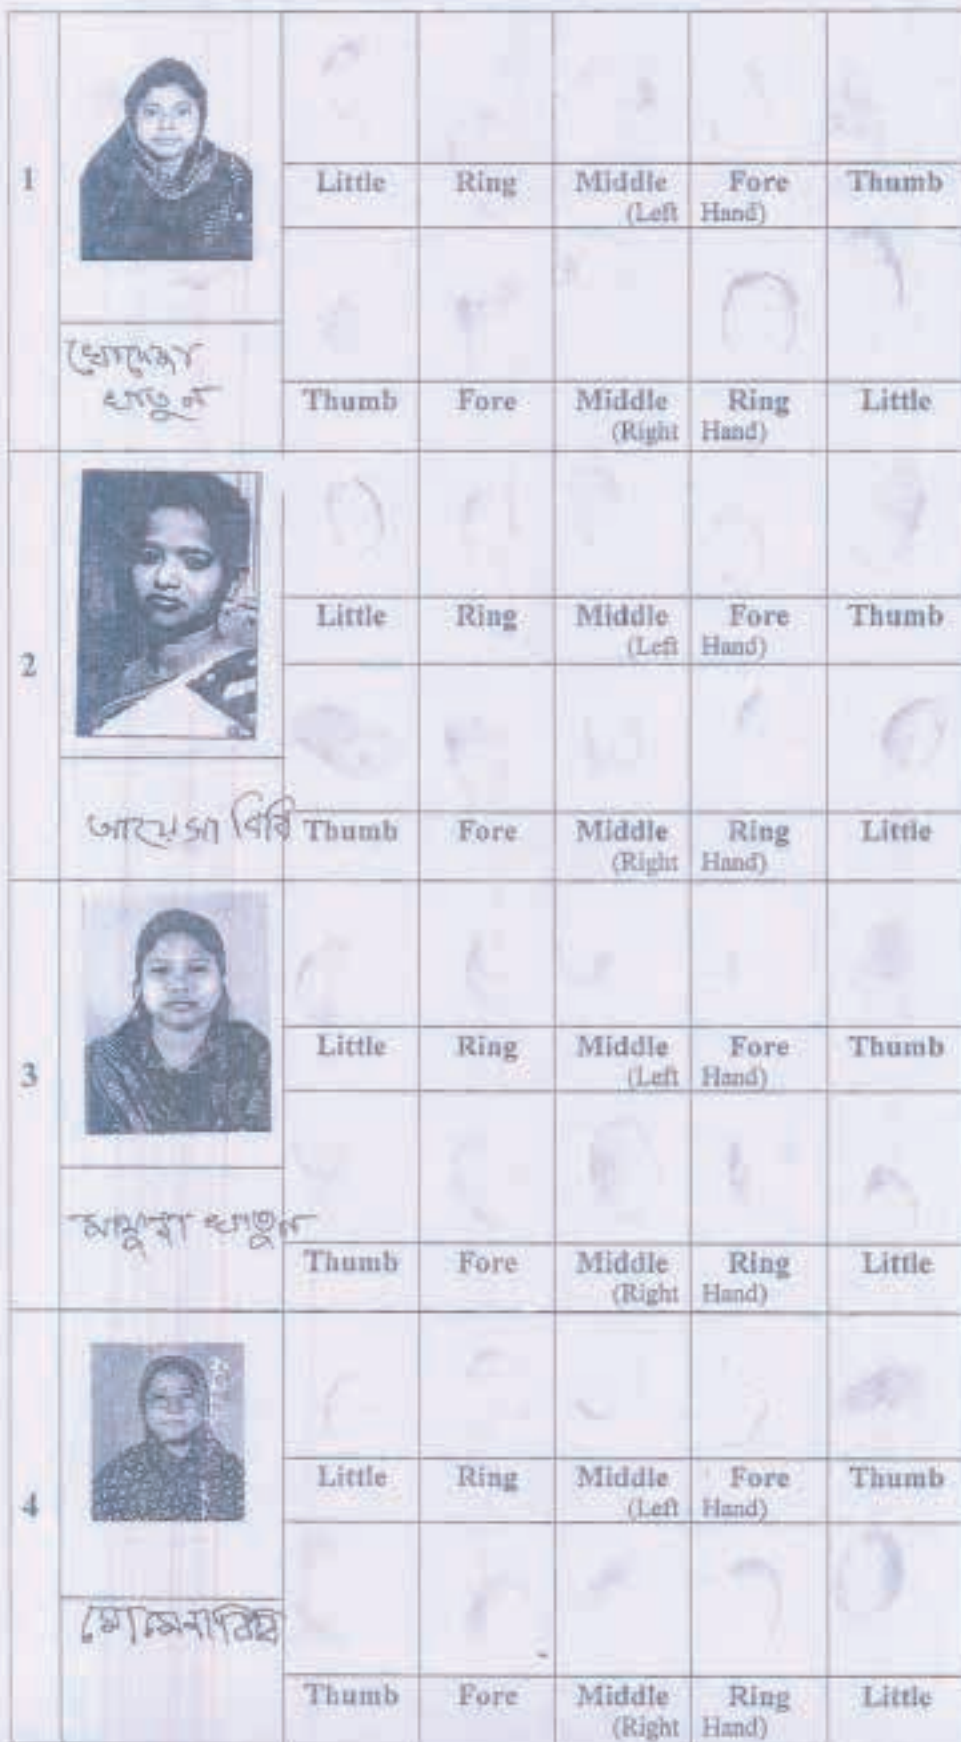 1
Little Ring Middle Fore Thumb
(Left Hand)
খোদেজা
খাতুন
Thumb Fore Middle Ring Little
(Right Hand)
2
Little Ring Middle Fore Thumb
(Left Hand)
আয়েসা বিবি
Thumb Fore Middle Ring Little
(Right Hand)
3
Little Ring Middle Fore Thumb
(Left Hand)
খাতুন
Thumb Fore Middle Ring Little
(Right Hand)
4
Little Ring Middle Fore Thumb
(Left Hand)
মোমেনা বিবি
Thumb Fore Middle Ring Little
(Right Hand)